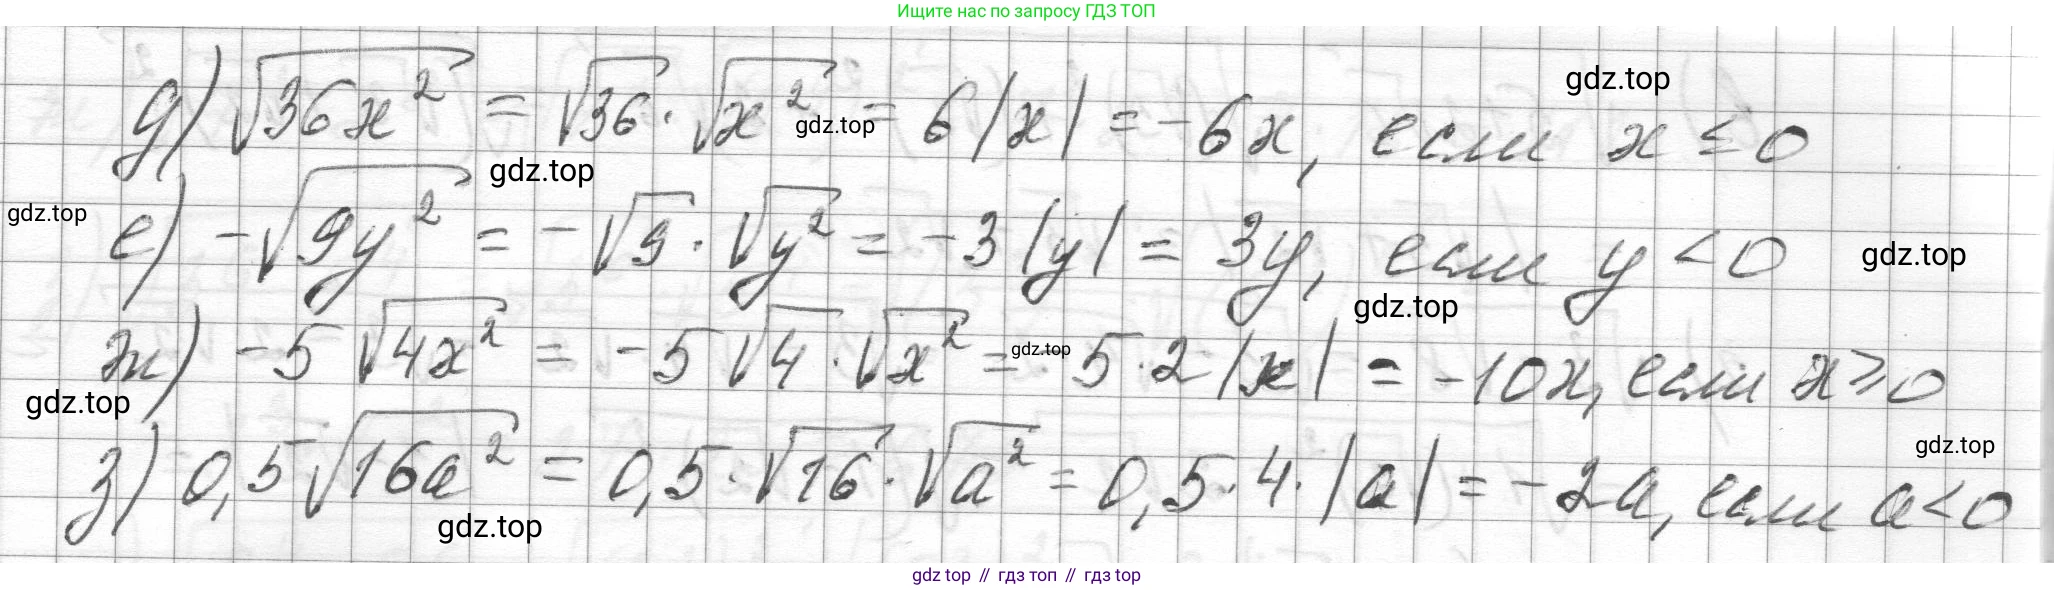 Ищите нас по запросу ГДЗ ТОП
gdz.top
д) √36x² = √36 · √x² = 6|x| = -6x, если x ≤ 0
gdz.top
gdz.top
gdz.top
е) -√9y² = -√9 · √y² = -3|y| = 3y, если y < 0
gdz.top
gdz.top
ж) -5√4x² = -5√4 · √x² = -5·2|x| = -10x, если x ≥ 0
gdz.top
gdz.top
gdz.top
з) 0,5√16a² = 0,5·√16·√a² = 0,5·4·|a| = -2a, если a<0
gdz.top
gdz top // гдз топ // gdz top